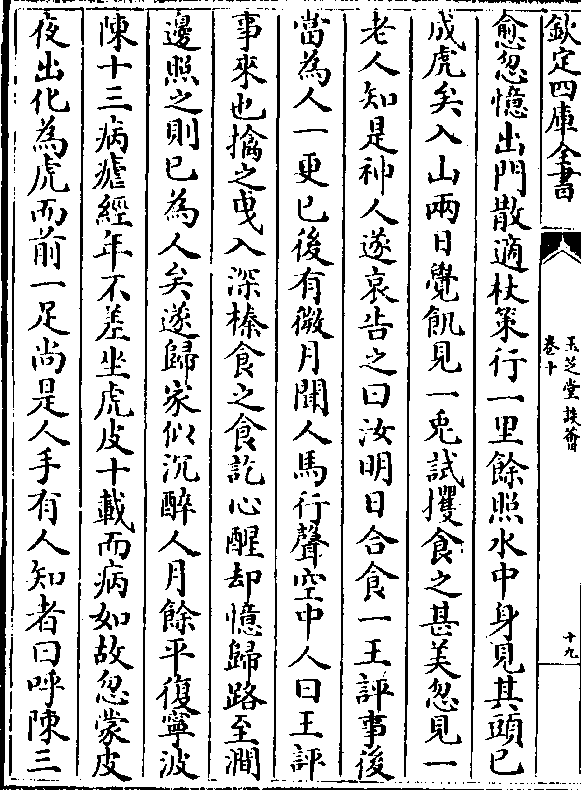 欽定四庫全書
玉芝堂談薈
卷十
十九
愈忽憶出門散適杖策行一里餘照水中身見其頭已
成虎矣入山兩日覺飢見一兎試攫食之甚美忽見一
老人知是神人遂哀告之曰汝明日合食一王評事後
當為人一更已後有微月聞人馬行聲空中人曰王評
事來也擒之曵入深榛食之食訖心醒却憶歸路至澗
邊照之則已為人矣遂歸家似沉醉人月餘平復寧波
陳十三病瘧經年不差坐虎皮十載而病如故忽蒙皮
夜出化為虎而前一足尚是人手有人知者曰呼陳三